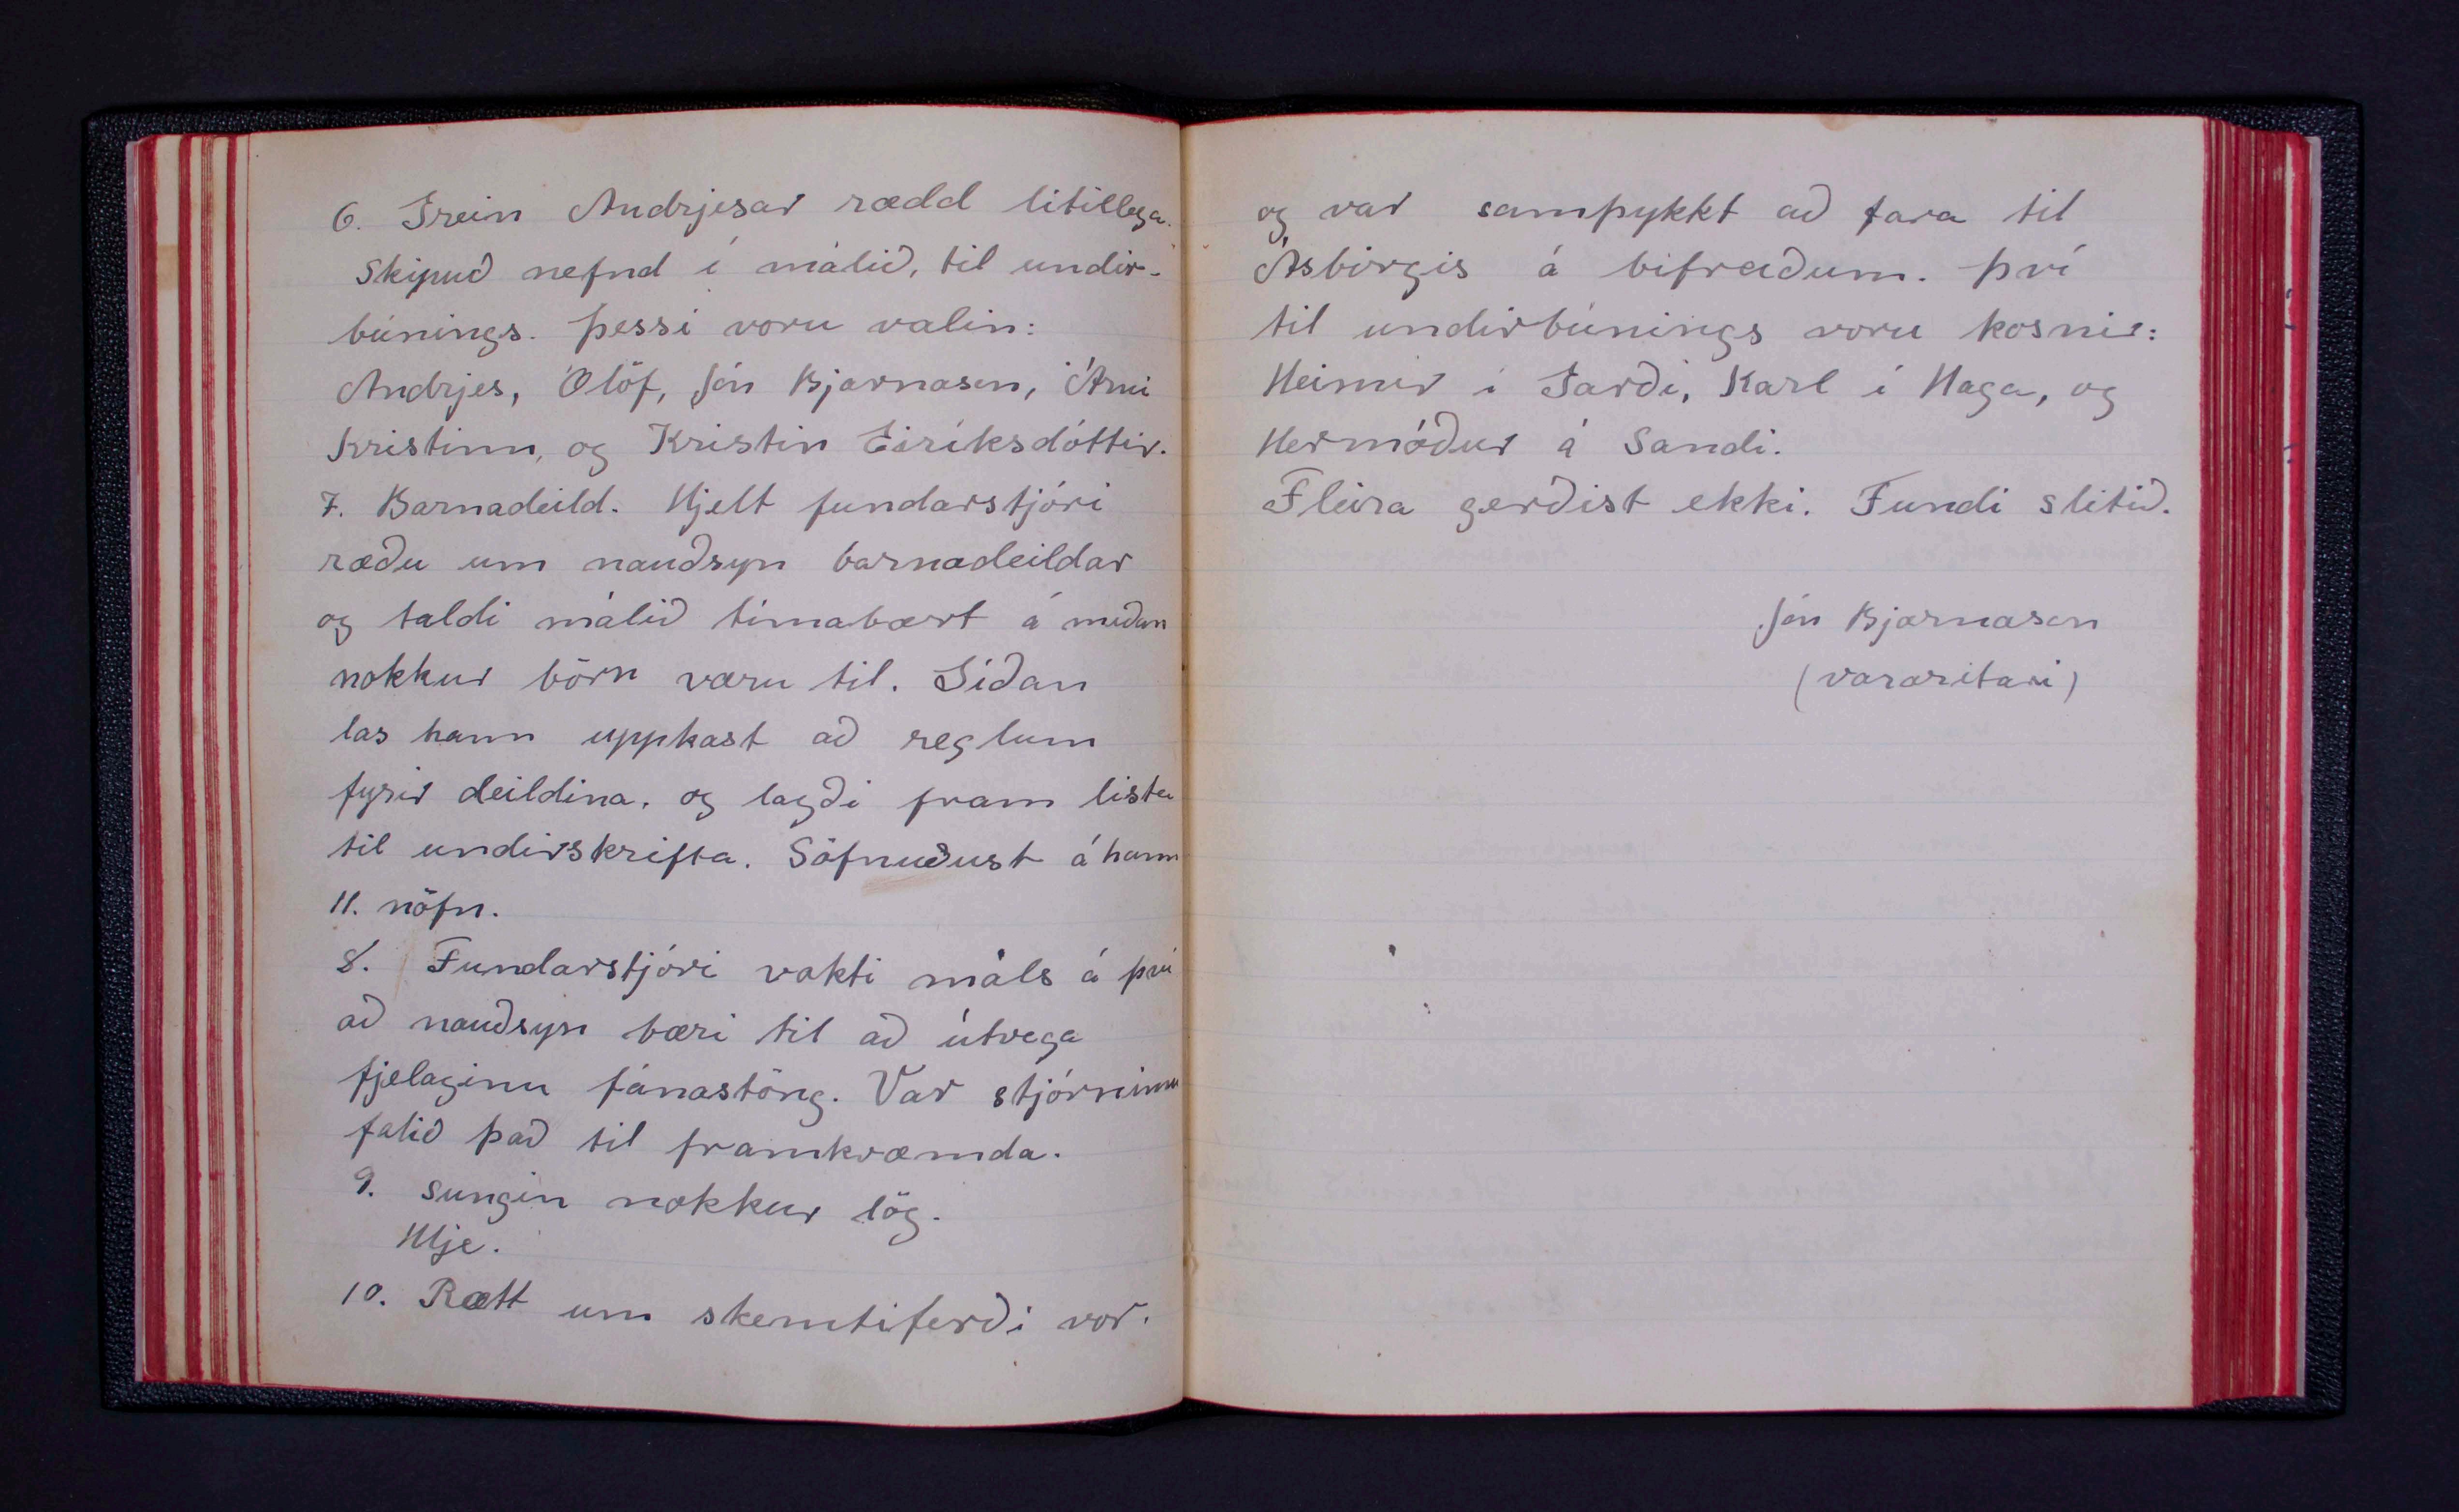 6. Grein Andrjesar rædd lítillega.
Skipuð nefnd í málið, til undir-
búnings. Þessi voru valin:
Andrjes, Ólöf, Jón Bjarnason, Árni
Kristinn, og Kristín Eiríksdóttir.
7. Barnadeild. Hjelt fundarstjóri
ræðu um nauðsyn barnadeildar
og taldi málið tímabært á meðan
nokkur börn væru til. Síðan
las hann uppkast að reglum
fyrir deildina, og lagði fram lista
til undirskrifta. Söfnuðust á hann
11. nöfn.
8. Fundarstjóri vakti máls á því
að nauðsyn bæri til að útvega
fjelaginu fánastöng. Var stjórninni
falið það til framkvæmda.
9. Sungin nokkur lög.
Hlje.
10. Rætt um skemtiferð í vor.
og var samþykkt að fara til
Ásbirgis á bifreiðum. Því
til undirbúnings voru kosnir:
Heimir í Garði, Karl í Haga, og
Hermóður á Sandi.
Fleira gerðist ekki. Fundi slitið.
Jón Bjarnason
(vararitari)